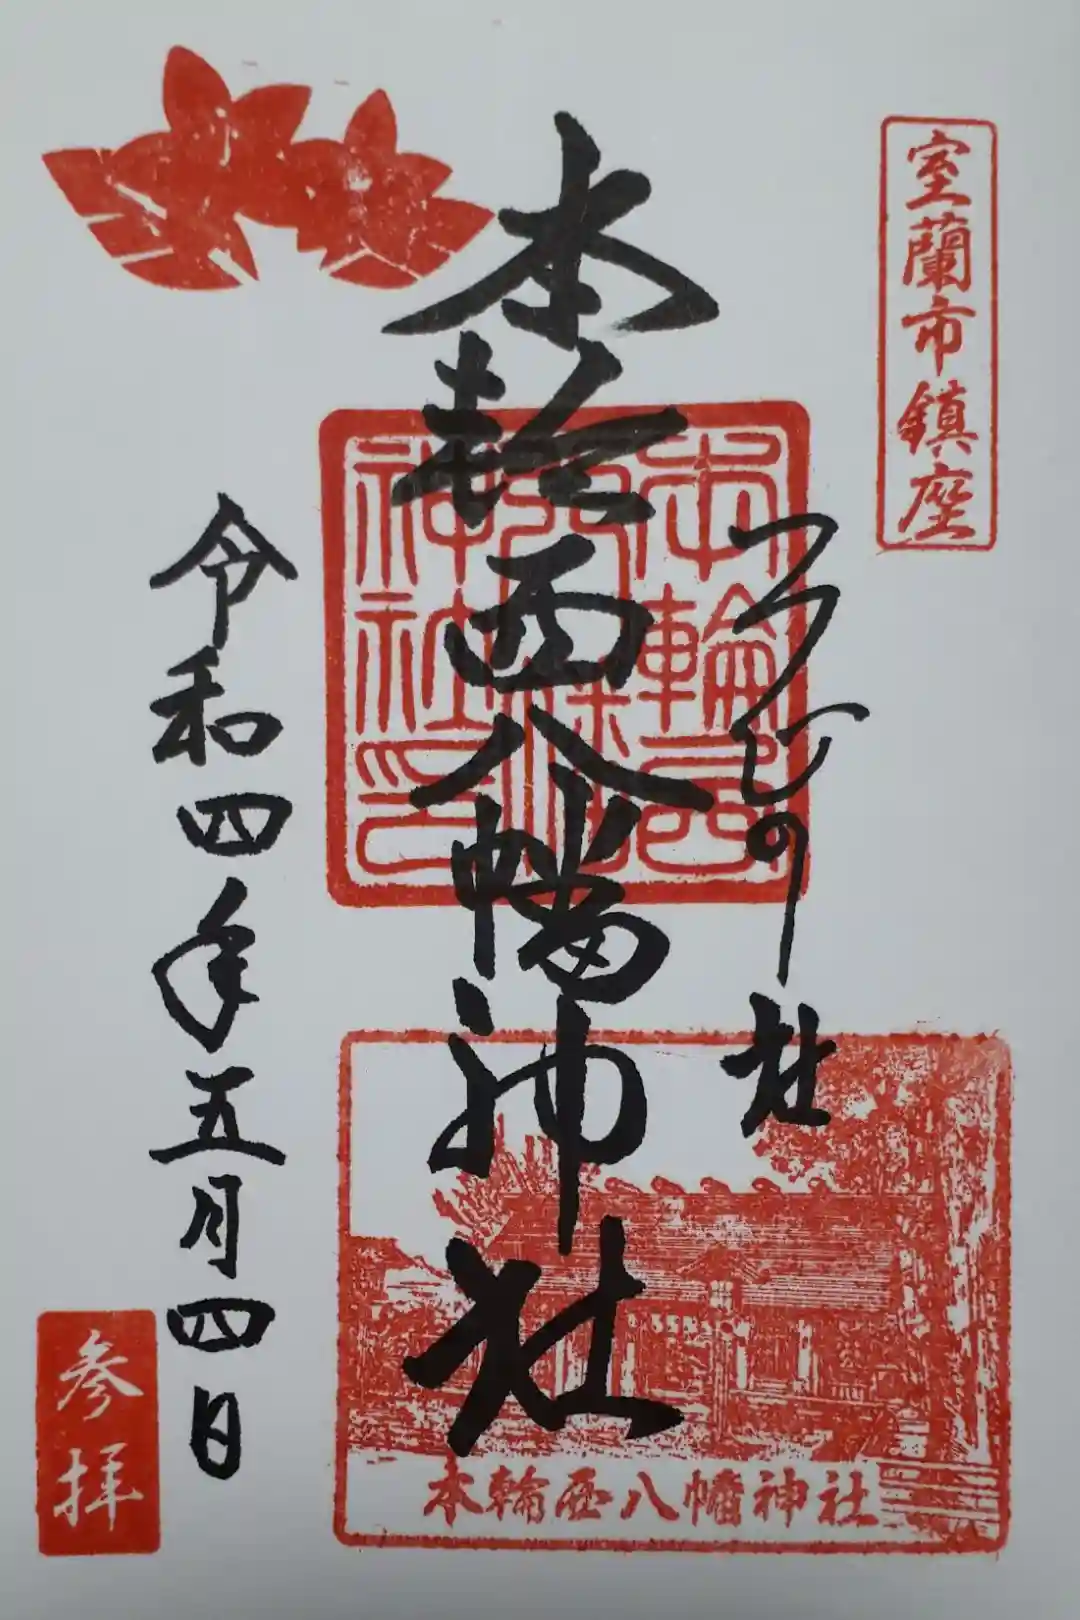 室蘭市鎮座
つつじの社
本輪西八幡神社
本輪西八幡神社印
令和四年五月四日
参拝
本輪西八幡神社